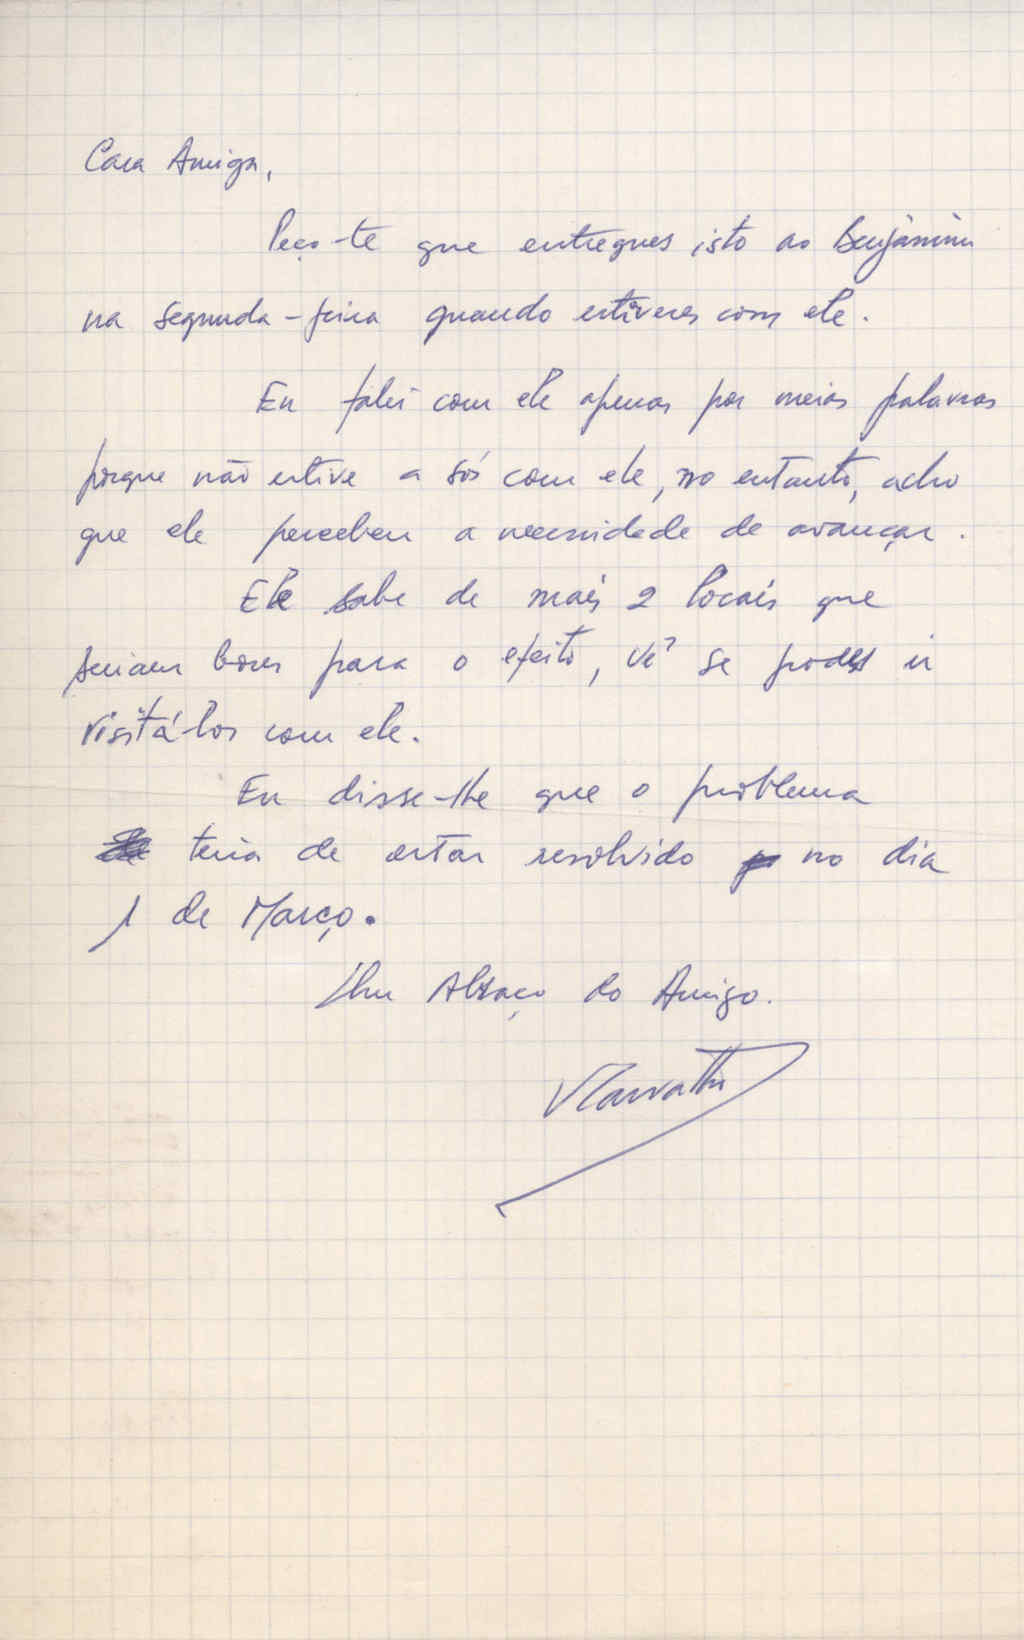 Cara Amiga,
Peço-te que entregues isto ao Benjamim
na segunda-feira quando estiveres com ele.
Eu falei com ele apenas por meias palavras
porque não estive a sós com ele, no entanto, acho
que ele percebeu a necessidade de avançar.
Ele sabe de mais 2 locais que
seriam bons para o efeito, vê se podes ir
visitá-los com ele.
Eu disse-lhe que o problema
teria de estar resolvido no dia
1 de Março.
Um Abraço do Amigo.